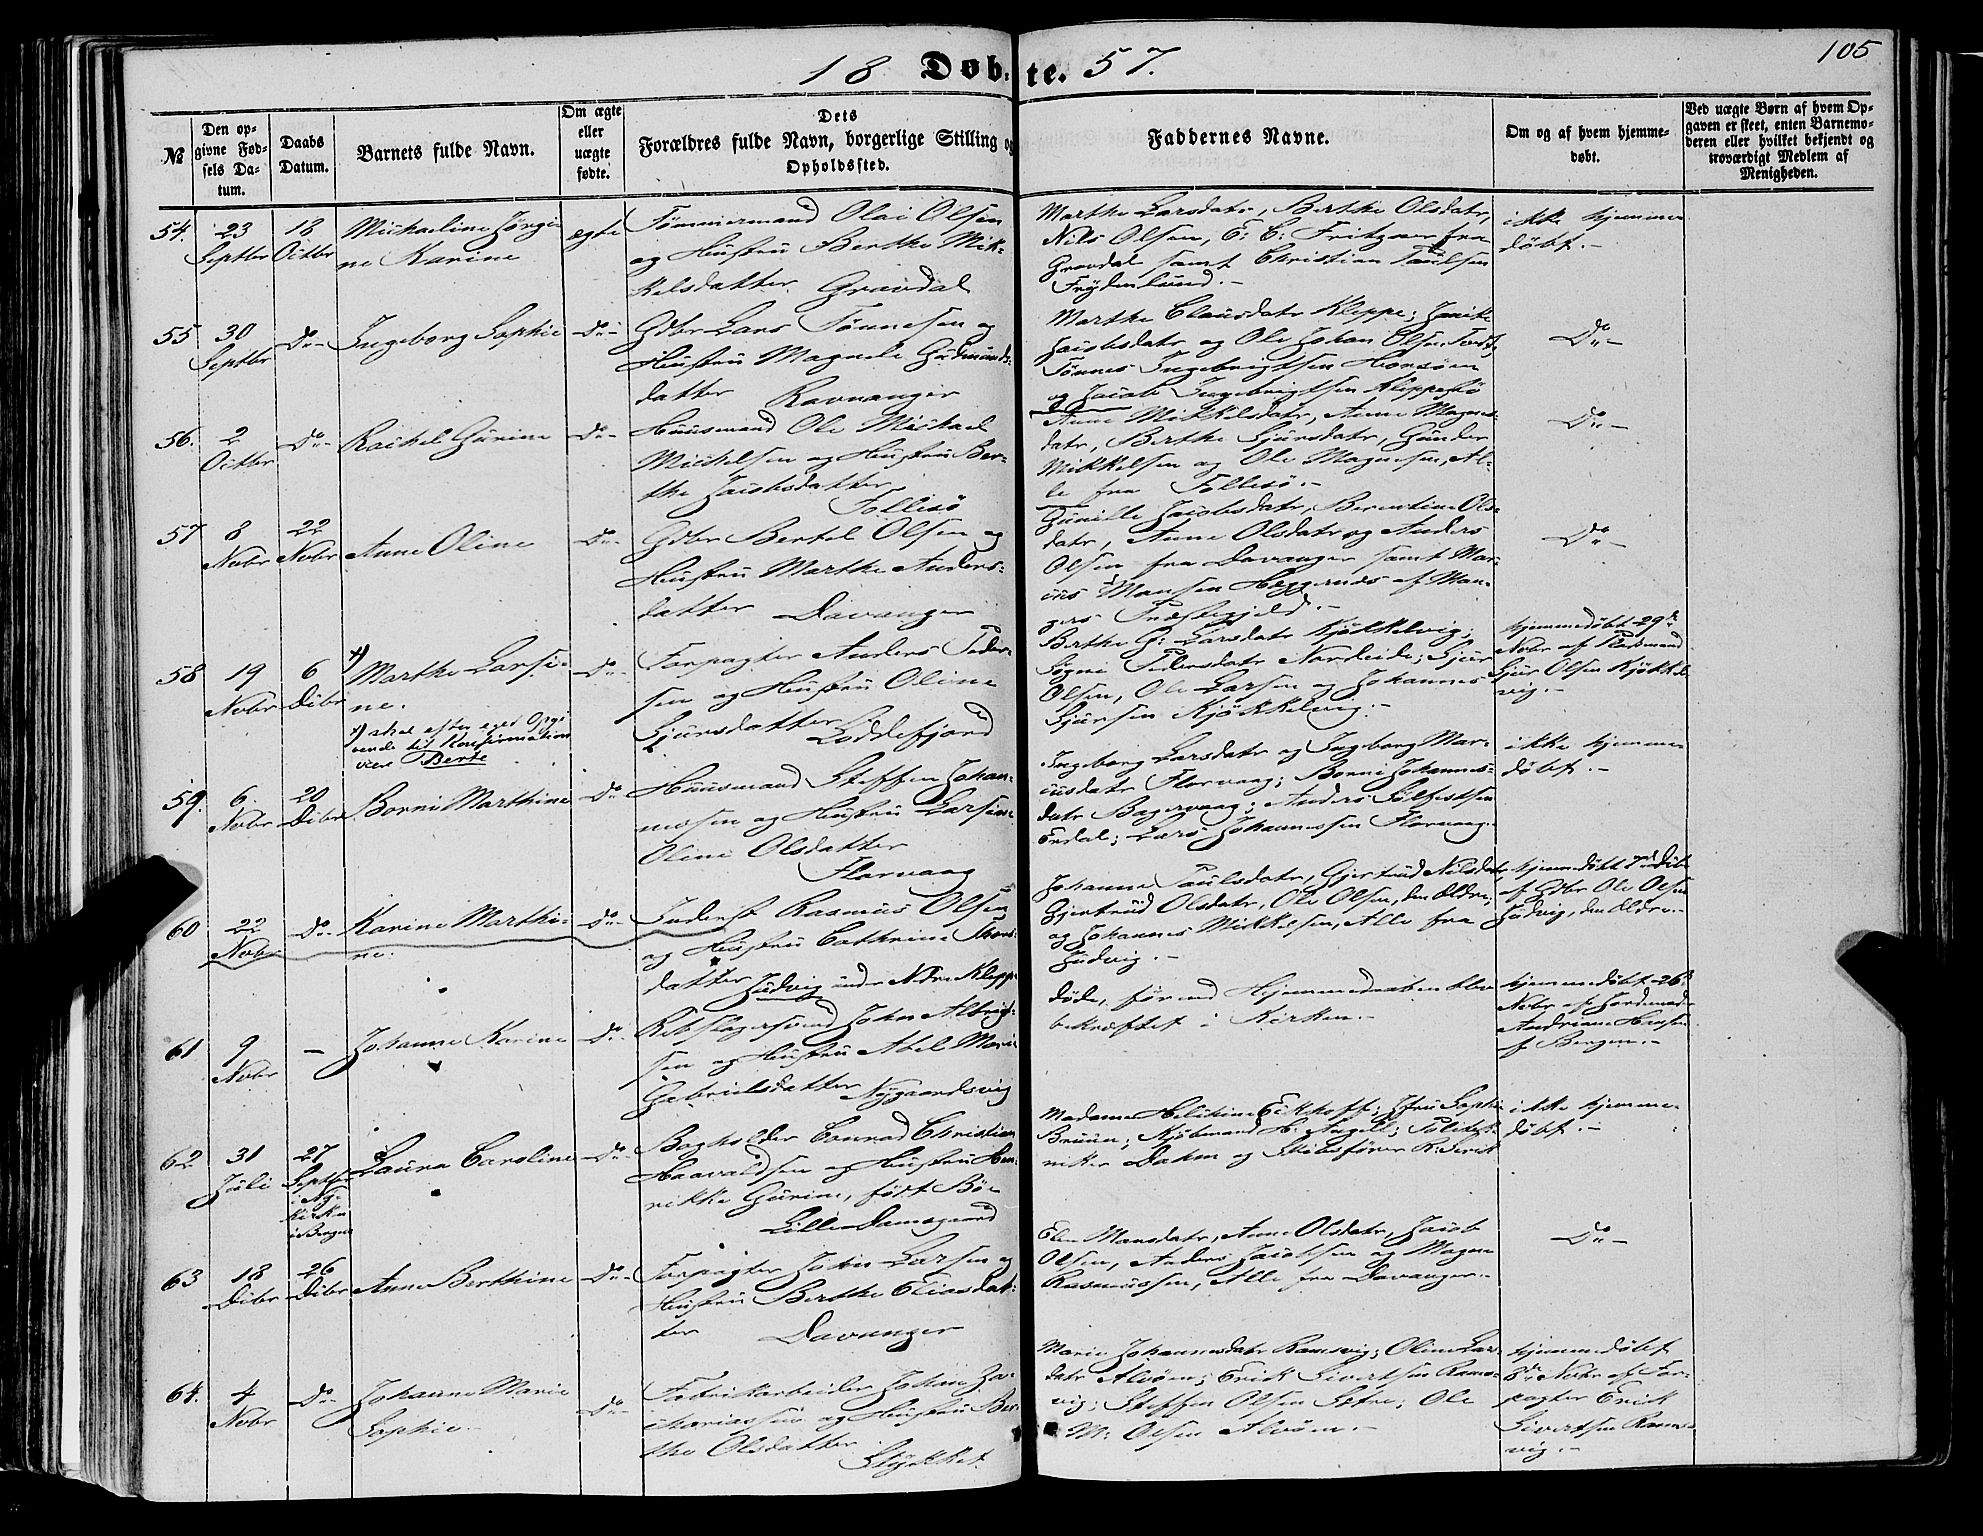 105
18 Døbte. 57.
№
Den op-
givne Fød-
sels Da-
tum.
Daabs
Datum.
Barnets fulde Navn.
Om ægte
eller
uægte
fødte.
Dets
Forældres fulde Navn, borgerlige Stilling og
Opholdssted.
Faddernes Navne.
Om og af hvem hjemme-
døbt.
Ved uægte Børn af hvem Op-
gaven er skeet, enten Barnemo-
deren eller hvilket bekjendt og
troværdigt Medlem af
Menigheden.
54. 23 Septbr
18 Octbr
Michaeline Jørgi-
ne Karine
ægte
Tømmermand Olai Olsen
og Hustru Berthe Mik-
kelsdatter Gravdal
Marthe Larsdatr, Berthe Olsdatr,
Nils Olsen, E: C: Fritzner fra
Gravdal samt Christian Paulsen
Frydenlund.-
ikke hjemme
døbt.-
55 30 Septbr
Do-
Ingeborg Sophie
Do-
Gdbr Lars Tönnesen og
Hustru Magnele Gudmunds-
datter Ravnanger
Marthe Clausdatr Kleppe;
Jacobsdatr og Ole Johan Olsen
Tønnes Ingebrigtsen
og Jacob Ingebrigtsen Kleppesø
Do-
56. 2 Octbr
Do-
Rachel Gurine
Do-
Huusmand Ole Michael
Michelsen og Hustru Ber-
the Jacobsdatter
Follesø
Anne Mikkelsdatr, Anne Magnes-
datr, Berthe Sjursdatr, Gunder
Mikkelsen og Ole Magnesen, Al-
le fra Follesø.-
Do-
57 8 Novbr
22 Novbr
Anne Oline
Do-
Gdbr Bertel Olsen og
Hustru Marthe Anders-
datter Davanger
Gunille Jacobsdatr, Berentine Ols-
datr, Anne Olsdatr og Anders
Olsen fra Davanger samt Mar-
ius Mansen Heggernæs af Man-
gers Præstegjeld.-
Do-
58 19 Novbr
6 Decbr
x) Marthe Larsi-
ne.
x) skal efter eget Opgi-
vende til Konfirmation
være Berte
Do-
Forpagter Anders Peder-
sen og Hustru Oline
Sjursdatter Loddefjord
Berthe G: Larsdatr Kjøkkelvig;
Søgni Pedersdatr Nordeide; Sjur
Olsen, Ole Larsen og Johannes
Sjursen Kjøkkelvig.-
hjemmedøbt 29de
Novbr af
Sjur Olsen Kjøkkel-
vig.-
59. 6. Novbr
20 Decbr
Borni Marthine
Do-
Huusmand Steffen Johan-
nessen og Hustru Larsine
Oline Olsdatter
Florvaag
Ingeborg Larsdatr og Ingeborg Mar-
iusdatr Florvaag; Borni Johannes-
datr Bagervaag; Anders Sølfestsen
Erdal; Lars Johannessen Florvaag.
ikke hjemme
døbt.-
60 22 Novbr
Do-
Karine Marthi-
ne.
Do-
Inderst Rasmus Olsen
og Hustru Cathrine
datter Judvig under Nedre Kleppe
Johanne Paulsdatr, Gjertrud Nilsdatr
Gjertrud Olsdatr, Ole Olsen, den Ældre;
og Johannes Mikkelsen, Alle fra
Judvig.-
hjemmedøbt 7de Decbr
af Gdbr Ole Olsen
Judvig, den Ældre.-
61 9 Novbr
-
Johanne Karine
Do-
Rebslagersvend John Albrigt-
sen og Hustru Abel Marie
Gabrielsdatter Nygaardsvig
døde, førend Hjemmedaaben blev
bekræftet i Kirken.-
hjemmedøbt 26de
Novbr af Jordemoder
Andriane Hansen
af Bergen.-
62 31 Juli
27 Septbr
i Ny-
kirken
i Bergen
Laura Caroline
Do-
Bogholder Conrad Christian
Haavaldsen og Hustru Hen-
rikke Gurine, født Böe
Lille Damsgaard
Madame Eckhoff; Jfru Sophie
Bruun; Kjøbmand H: Angell;
Dahm og Skibsfører
ikke hjemme-
døbt.-
63 18 Decbr
26 Decbr
Anne Berthine
Do-
Forpagter John Larsen og
Hustru Berthe Eliasdat-
ter Davanger
Elen Mansdatr, Anne Olsdatr, Jacob
Olsen, Anders Jacobsen og Magne
Rasmussen, Alle fra Davanger.-
Do-
64. 4 Novbr
Do-
Johanne Marie
Sophie.
Do-
Fabrikarbeider Johan Za-
chariassen og Hustru Ber-
the Olsdatter
Stykket
Marie Johannesdatr Ramsvig; Oline Lars-
datr Alvøen; Erik Sivertsen Rams-
vig; Steffen Olsen Sætre; Ole
M: Olsen Alvøen.-
hjemmedøbt
8de Novbr af For-
pagter Erik
Sivertsen Rams-
vig.-